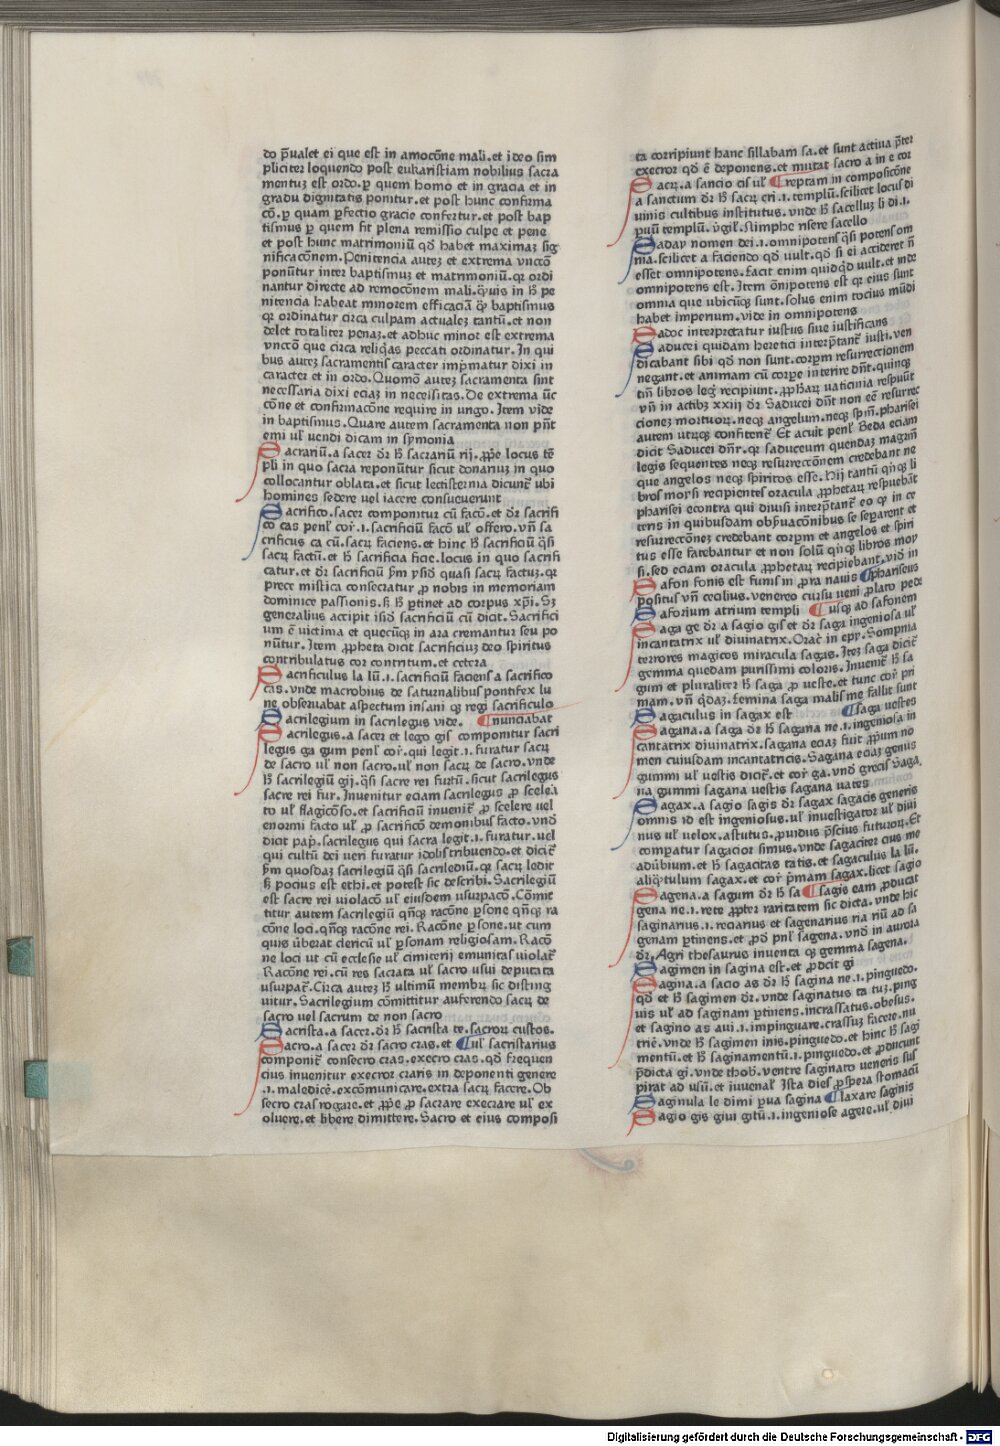 do p̄ualet ei que est in amocōne mali.et ideo sim
pliciter loquendo post eukaristiam nobilius sacra
mentuꝫ est ordo.ꝑ quem homo et in gracia et in
gradu dignitatis ponitur.et post hunc confirma
cō.ꝑ quam ꝑfectio gracie confertur.et post bap
tismus ꝑ quem fit plena remissio culpe et pene
et post hunc matrimoniū qď habet maximaꝫ sig
nificaconē.Penitencia auteꝫ et extrema vnctō
ponūtur inter baptismuꝫ et matrimoniū.qꝛ ordi
nantur directe ad remocōnem mali.q̄uis in ꝧ pe
nitencia habeat minorem efficaciā ꝙ̄ baptismus
qꝛ ordinatur circa culpam actualeꝫ tantū.et non
delet totaliter penaꝫ.et adhuc minor est extrema
vnctō que circa reliq̄as peccati ordinatur. In qui
bus auteꝫ sacramentis caracter imp̄matur dixi in
caracter et in ordo.Quomō auteꝫ sacramenta sint
necessaria dixi eciaꝫ in necessitas.De extrema ūc
cōne et confirmacōne require in ungo.Item vide
in baptismus.Quare autem sacramenta non pn̄t
emi ul̄ uendi dicam in symonia
Sacrariū.a sacer dꝛ̄ ꝧ sacrariū rij.ꝓṕe locus tē
pli in quo sacra reponūtur sicut donariuꝫ in quo
collocantur oblata.et sicut lectisternia dicunt̄ ubi
homines sedere uel iacere consueuerunt
Sacrifico.sacer componitur cū facō.et dꝛ̄ sacrifi
co cas penl̄ coꝛ̄.ı.sacrificiū facō ul̄ offero.vn̄ sa
crificus ca cū.sacꝝ faciens.et hinc ꝧ sacrificiū q̄si
sacꝝ factū.et ꝧ sacrificia ficie.locus in quo sacrifi
catur.et dꝛ̄ sacrificiū ẜm ysid̄ quasi sacꝝ factuꝫ.qꝛ
prece mistica consecratur ꝓ nobis in memoriam
dominice passionis.ꝭ ꝧ ꝑtinet ad corpus xp̄i.Sꝫ
generalius accipit isid̄ sacrificiū cū dicit.Sacrifici
um ē victima et quecūqꝫ in ara cremantur seu po
nūtur.Item ꝓpheta dicit sacrificiuꝫ deo spiritus
contribulatus cor contritum.et cetera
Sacrificulus la lū.ı.sacrificiū faciens a sacrifico
cas.vnde macrobius de saturnalibus pontifex lu
ne obseruabat aspectum insani qꝫ regi sacrificulo
Sacrilegium in sacrilegus vide. ¶nunciabat
Sacrilegus.a sacer et lego gis componitur sacri
legus ga gum penl̄ coꝛ̄.qui legit.ı.furatur sacꝝ
de sacro ul̄ non sacro.ul̄ non sacꝝ de sacro.vnde
ꝧ sacrilegiū gij.q̄si sacre rei furtū.sicut sacrilegus
sacre rei fur.Inuenitur eciam sacrilegus ꝓ scelea
to ul̄ flagicōso.et sacrificiū inuenit̄ ꝓ scelere uel
enormi facto ul̄ ꝓ sacrificō demonibus facto.vnď
dicit pap̄.sacrilegus qui sacra legit.ı.furatur.uel
qui cultū dei ueri furatur idolis tribuendo.et dicit̄
ẜm quosdaꝫ sacrilegiū q̄si sacrilediū.qꝛ sacꝝ ledit
ꝭ pocius est ethi.et potest sic describi.Sacrilegiū
est sacre rei uiolacō ul̄ eiusdem usurpacō.Cōmit
titur autem sacrilegiū qn̄qꝫ racōne ꝑsone qn̄qꝫ ra
cōne loci.qn̄qꝫ racōne rei.Racōne ꝑsone.ut cum
quis ūberat clericū ul̄ ꝑsonam religiosam.Racō
ne loci ut cū ecclesie ul̄ cimiterij emunitas uiolat̄
Racōne rei.cū res sacrata ul̄ sacro usui deputata
usurpat̄.Circa auteꝫ ꝧ ultimū membꝝ sic disting
uitur.Sacrilegium cōmittitur auferendo sacꝝ de
sacro uel sacrum de non sacro
Sacrista.a sacer.dꝛ̄ ꝧ sacrista te.sacroꝝ custos.
Sacro.a sacer dꝛ̄ sacro cras.et ¶ul̄ sacristarius
componit̄ consecro cras.execro cras.qď frequen
cius inuenitur execror craris in deponenti genere
.ı.maledicē.excōmunicare.extra sacꝝ facere.Ob
secro cras rogare.et ꝓṕe ꝓ sacrare execrare ul̄ ex
oluere.et libere dimittere.Sacro et eius composi
ta corripiunt hanc sillabam sa.et sunt actiua p̄ter
execror qď ē deponens.et mutat sacro a in e cor
Sacꝝ.a sancio cis ul̄ ¶reptam in composicōne
a sanctum dꝛ̄ ꝧ sacꝝ cri.ı.templū.scilicet locus di
uinis cultibus institutus.vnde ꝧ sacelluꝫ li di.ı.
ꝑuū templū.v̄gil̄.Nimphe risere sacello
Saday nomen dei.ı.omnipotens q̄si potens om
nia.scilicet a faciendo qď uult.qď si ei accideret n̄
esset omnipotens.facit enim quidqd̄ uult.et inde
omnipotens est.Item ōnipotens est qꝛ eius sunt
omnia que ubicūqꝫ sunt.solus enim tocius mūdi
habet imperium.vide in omnipotens
Sadoc interpretatur iustus siue iustificans
Saducei quidam heretici interp̄tant̄ iusti.ven
dicabant sibi qď non sunt.corꝑm resurreccionem
negant.et animam cū corꝑe interire dn̄t.quinqꝫ
tm̄ libros leḡ recipiunt.ꝓpħaꝝ uaticinia respuūt
vn̄ in actibꝫ xxiij dꝛ̄ Saducei dn̄t non eē resurrec
cioneꝫ mortuoꝝ.neqꝫ angelum.neqꝫ spm̄.pharisei
autem utrūqꝫ confitent̄ Et acuit penl̄ Beda eciam
dicit Saducei dn̄r.qꝛ saduceum quendaꝫ magr̄m
legis sequentes neqꝫ resurrectōnem credebant ne
que angelos neqꝫ spiritos esse.Hij tantū qn̄qꝫ li
bros moysi recipientes oracula ꝓphetaꝝ respuebāt
pharisei econtra qui diuisi interp̄tant̄ eo qꝫ in ce
teris in quibusdam obp̄uacōnibus se separent et
resurrectōneꝫ credebant corꝑm et angelos et spiri
tus esse fatebantur et non solū qn̄qꝫ libros moy
si.sed eciam oracula ꝓphetaꝝ recipiebant.viď in
Safon fonis est funis in ꝓra nauis ¶phariseus
positus vn̄ cecilius.venereo cursu ueni ꝓlato pede
Saforium atrium templi ¶usqꝫ ad safonem
Saga ge dꝛ̄ a sagio gis et dꝛ̄ saga ingeniosa ul̄
incantatrix ul̄ diuinatrix.Orac̄ in epȳ.Sompnia
terrores magicos miracula sagas.Iteꝫ saga dicit̄
gemma quedam purissimi coloris.Inuenit̄ ꝧ sa
gum et pluraliter ꝧ saga ꝓ ueste.et tunc coꝛ̄ pri
mam.vn̄ q̄daꝫ.femina saga malis me fallit sunt
Sagaculus in sagax est ¶saga uestes
Sagana.a saga dꝛ̄ ꝧ sagana ne.ı.ingeniosa in
cantatrix diuinatrix.sagana eciaꝫ fuit ꝓp̄um no
men cuiusdam incantatricis.Sagana eciaꝫ genus
gummi ul̄ uestis dicit̄.et coꝛ̄ ga.vnď grecis̄ Saga,
na gummi sagana uestis sagana uates
Sagax.a sagio sagis dꝛ̄ sagax sagacis generis
omnis id est ingeniosus.ul̄ inuestigator ul̄ diui
nus ul̄ uelox.astutus.ꝓuidus p̄scius futuroꝝ.Et
comꝑatur sagacior simus.vnde sagaciter cius me
adūbium.et ꝧ sagacitas tatis.et sagaculus la lū.
aliq̄tulum sagax.et coꝛ̄ p̄mam sagax.licet sagio
Sagena.a sagum dꝛ̄ ꝧ sa ¶sagis eam ꝓducat
gena ne.ı.rete ꝓpter raritatem sic dicta.vnde hic
saginarius.ı.reciarius et sagenarius ria riū ad sa
genam ꝑtinens.et ꝓď pnl̄ sagena.vnď in aurora
dꝛ̄.Agri thesaurus inuenta qꝫ gemma sagena.
Sagimen in sagina est.et ꝓdcit gi
Sagina.a sacio as dꝛ̄ ꝧ sagina ne.ı.pinguedo.
qď et ꝧ sagimen dꝛ̄.vnde saginatus ta tuꝫ.ping
uis ul̄ ad saginam ꝑtinens.incrassatus.obesus.
et sagino as aui.ı.impinguare.crassuꝫ facere.nu
trīe.vnde ꝧ sagimen inis.pinguedo.et hinc ꝧ sagi
mentū.et ꝧ saginamentū.ı.pinguedo.et ꝓducunt
p̄dicta gi.vnde thob̄.ventre saginato ueneris sus
pirat ad usū.et iuuenal̄ Ista dies ꝓspera stomacū
Saginula le dimi ꝑua sagina ¶laxare saginis
Sagio gis giui gitū.ı.ingeniose agere.ul̄ diui
Digitalisierung gefördert durch die Deutsche Forschungsgemeinschaft - DFG